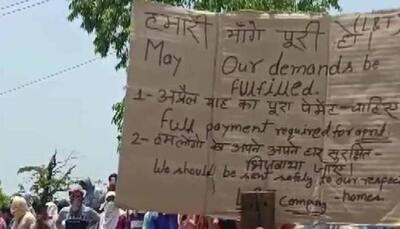 हमारी माँगे पूरी हो। (L&T)
May Our demands be
fulfilled.
1- अप्रैल माह का पूरा पेमेंट - चाहिए
full payment required for april
2- हमलोगो को अपने अपने घर सुरक्षित-
भिजवाया जाए।
We should be sent safely to our respec
company - homes.